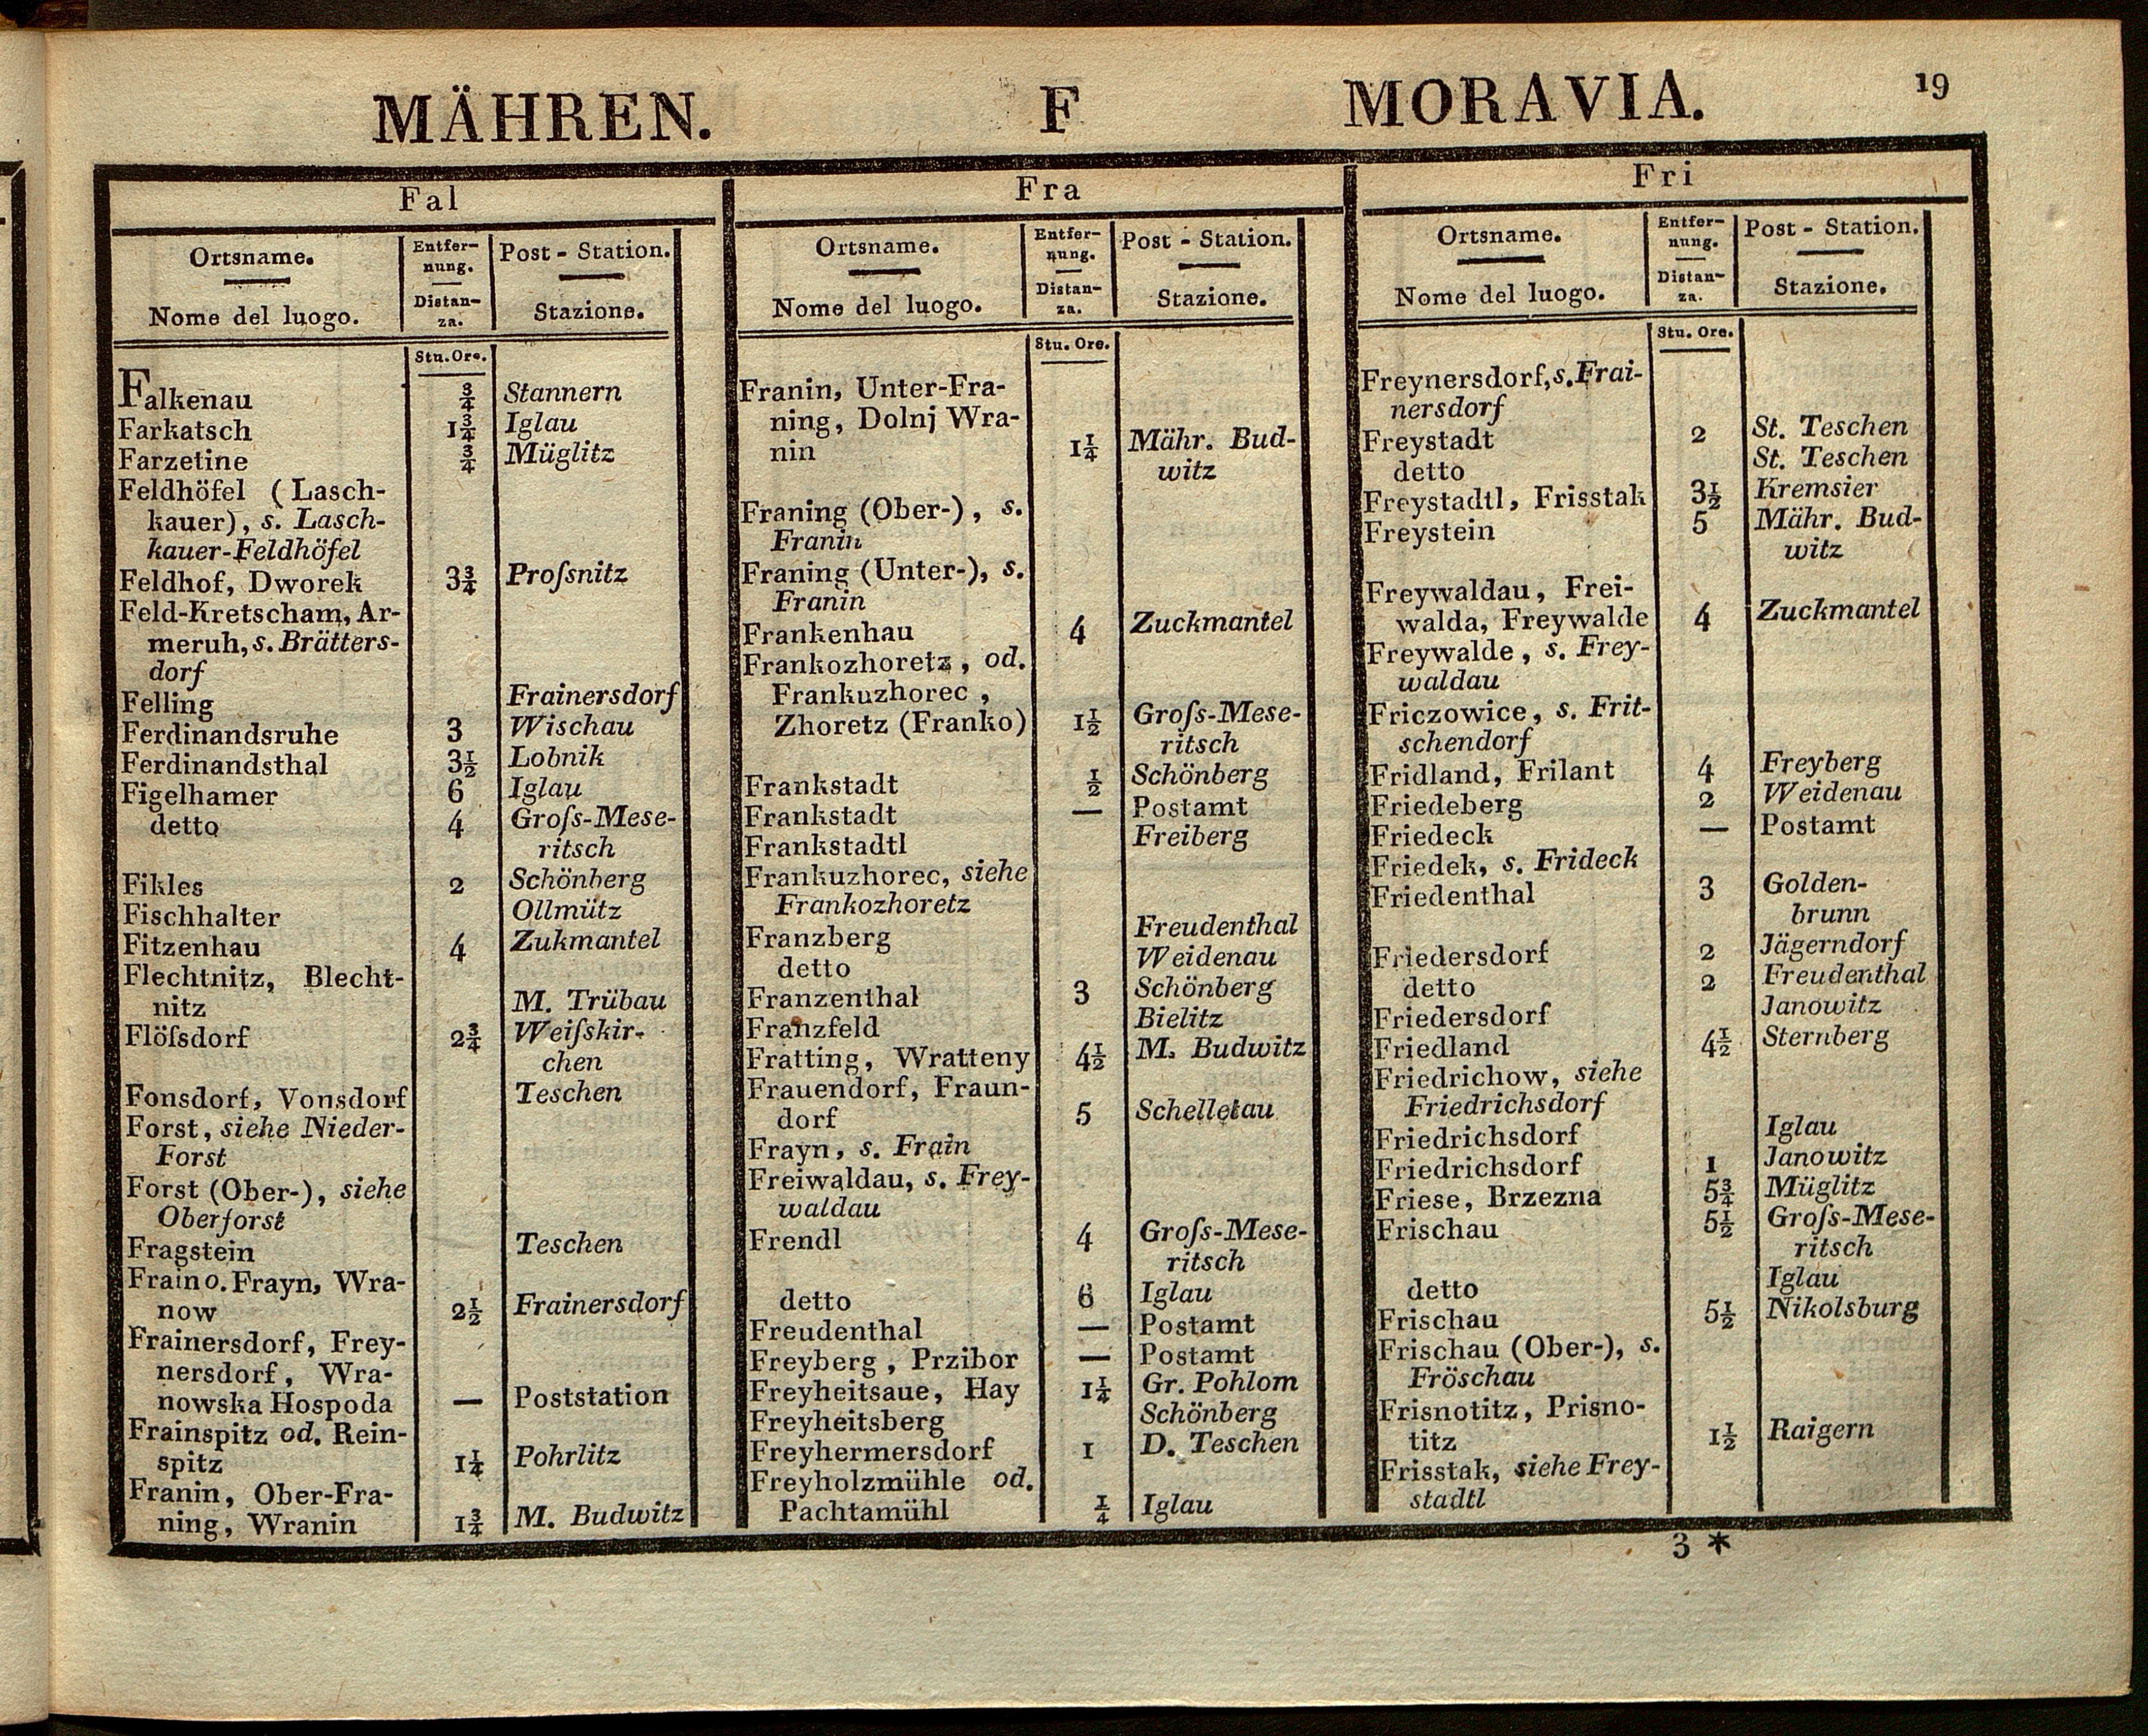 MÄHREN. F MORAVIA. 19
Fal
Ortsname. Entfer- Post - Station.
nung.
Nome del luogo. Distan- Stazione.
za.
Stu. Ore.
Falkenau ¾ Stannern
Farkatsch 1¾ Iglau
Farzetine ¾ Müglitz
Feldhöfel (Lasch-
kauer), s. Lasch-
kauer-Feldhöfel
Feldhof, Dworek 3¾ Proſsnitz
Feld-Kretscham, Ar-
meruh, s. Brätters-
dorf
Felling Frainersdorf
Ferdinandsruhe 3 Wischau
Ferdinandsthal 3½ Lobnik
Figelhamer 6 Iglau
detto 4 Groſs-Mese-
ritsch
Fikles 2 Schönberg
Fischhalter Ollmütz
Fitzenhau 4 Zukmantel
Flechtnitz, Blecht-
nitz M. Trübau
Flöſsdorf 2¾ Weiſskir-
chen
Fonsdorf, Vonsdorf Teschen
Forst, siehe Nieder-
Forst
Forst (Ober-), siehe
Oberforst
Fragstein Teschen
Frain o. Frayn, Wra-
now 2½ Frainersdorf
Frainersdorf, Frey-
nersdorf, Wra-
nowska Hospoda — Poststation
Frainspitz od. Rein-
spitz 1¼ Pohrlitz
Franin, Ober-Fra-
ning, Wranin 1¾ M. Budwitz
Fra
Ortsname. Entfer- Post - Station.
nung.
Nome del luogo. Distan- Stazione.
za.
Stu. Ore.
Franin, Unter-Fra-
ning, Dolnj Wra-
nin 1¼ Mähr. Bud-
witz
Franing (Ober-), s.
Franin
Franing (Unter-), s.
Franin
Frankenhau 4 Zuckmantel
Frankozhoretz, od.
Frankuzhorec,
Zhoretz (Franko) 1½ Groſs-Mese-
ritsch
Frankstadt ½ Schönberg
Frankstadt — Postamt
Frankstadtl Freiberg
Frankuzhorec, siehe
Frankozhoretz
Franzberg Freudenthal
detto Weidenau
Franzenthal 3 Schönberg
Franzfeld Bielitz
Fratting, Wratteny 4½ M. Budwitz
Frauendorf, Fraun-
dorf 5 Schelletau
Frayn, s. Frain
Freiwaldau, s. Frey-
waldau
Frendl 4 Groſs-Mese-
ritsch
detto 6 Iglau
Freudenthal — Postamt
Freyberg, Przibor — Postamt
Freyheitsaue, Hay 1¼ Gr. Pohlom
Freyheitsberg Schönberg
Freyhermersdorf 1 D. Teschen
Freyholzmühle od.
Pachtamühl ¼ Iglau
Fri
Ortsname. Entfer- Post - Station.
nung.
Nome del luogo. Distan- Stazione.
za.
Stu. Ore.
Freynersdorf, s. Frai-
nersdorf
Freystadt 2 St. Teschen
detto St. Teschen
Freystadtl, Frisstak 3½ Kremsier
Freystein 5 Mähr. Bud-
witz
Freywaldau, Frei-
walda, Freywalde 4 Zuckmantel
Freywalde, s. Frey-
waldau
Friczowice, s. Frit-
schendorf
Fridland, Frilant 4 Freyberg
Friedeberg 2 Weidenau
Friedeck — Postamt
Friedek, s. Frideck
Friedenthal 3 Golden-
brunn
Friedersdorf 2 Jägerndorf
detto 2 Freudenthal
Friedersdorf Janowitz
Friedland 4½ Sternberg
Friedrichow, siehe
Friedrichsdorf
Friedrichsdorf Iglau
Friedrichsdorf 1 Janowitz
Friese, Brzezna 5¾ Müglitz
Frischau 5½ Groſs-Mese-
ritsch
detto Iglau
Frischau 5½ Nikolsburg
Frischau (Ober-), s.
Fröschau
Frisnotitz, Prisno-
titz 1½ Raigern
Frisstak, siehe Frey-
stadtl
3 *